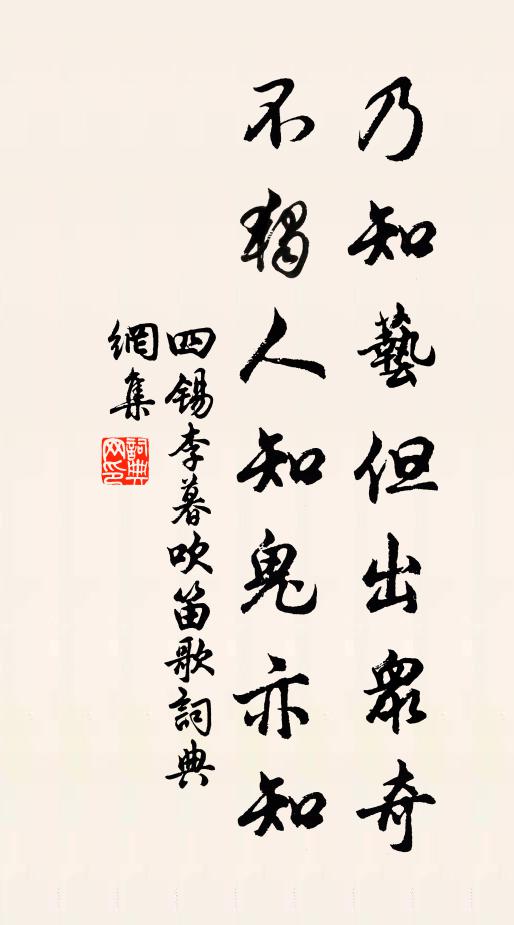 乃知藝但出眾奇
不獨人知鬼亦知
四錫李暮吹笛歌詞典
網集
詞典網印